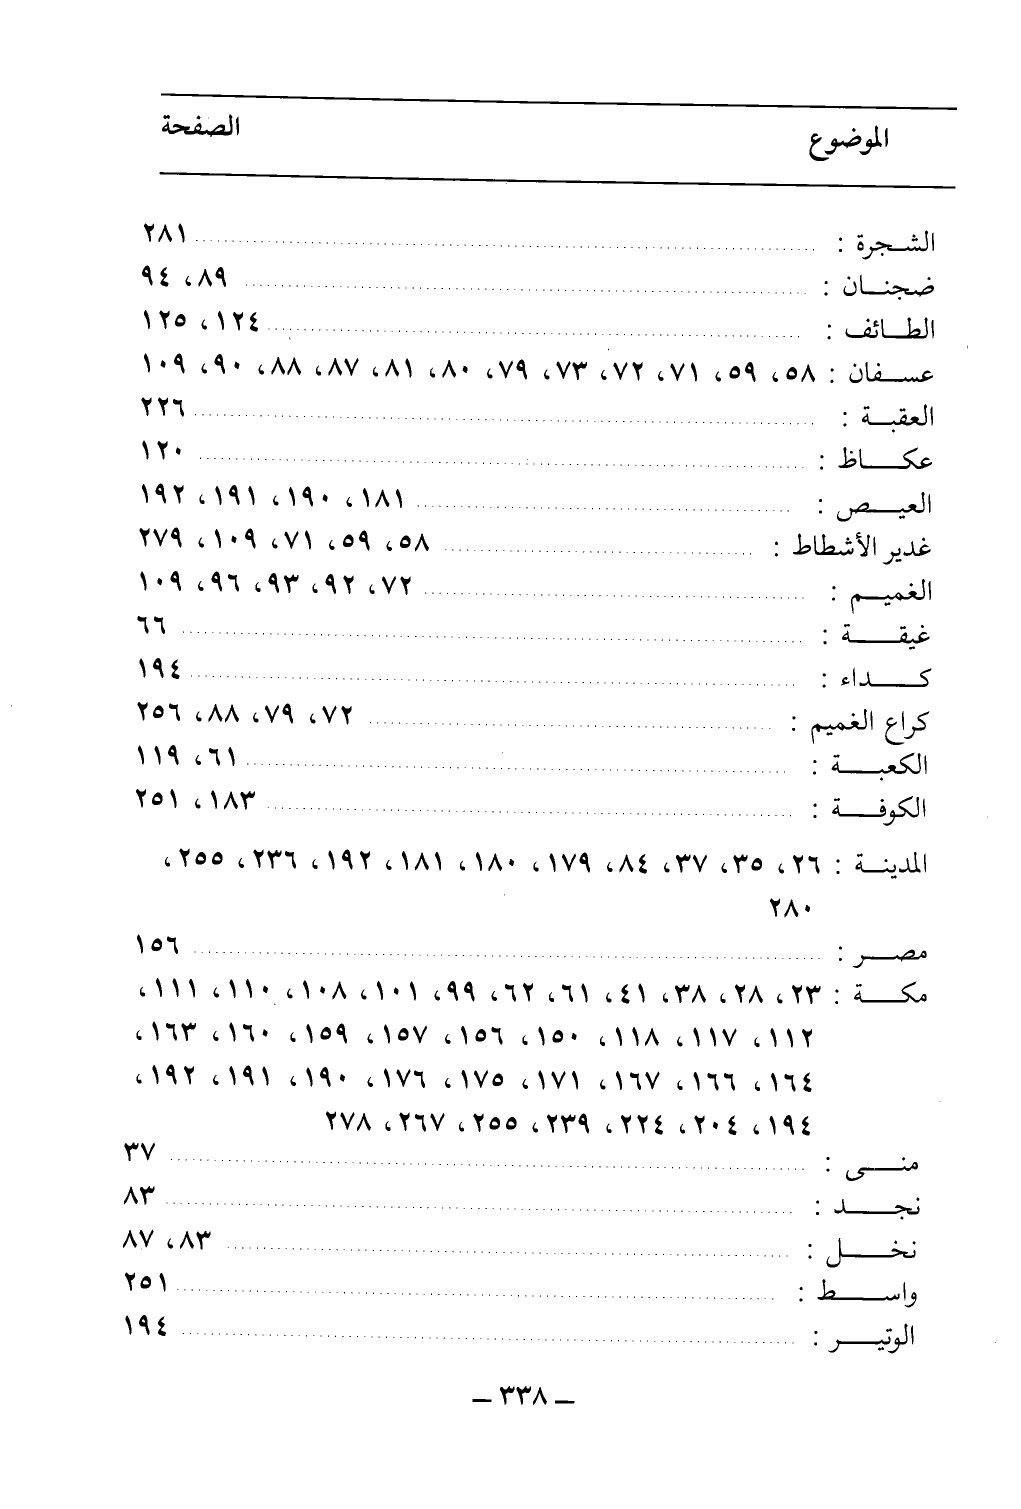 الموضوع الصفحة
الشجرة : ٢٨١
ضجنان : ٨٩، ٩٤
الطائف : ١٢٤، ١٢٥
عسفان : ٥٨، ٥٩، ٧١، ٧٢، ٧٣، ٧٩، ٨٠، ٨١، ٨٧، ٨٨، ٩٠، ١٠٩
العقبة : ٢٢٦
عكاظ : ١٢٠
العيص : ١٨١، ١٩٠، ١٩١، ١٩٢
غدير الأشطاط : ٥٨، ٥٩، ٧١، ١٠٩، ٢٧٩
الغميم : ٧٢، ٩٢، ٩٣، ٩٦، ١٠٩
غيقة : ٦٦
كداء : ١٩٤
كراع الغميم : ٧٢، ٧٩، ٨٨، ٢٥٦
الكعبة : ٦١، ١١٩
الكوفة : ١٨٣، ٢٥١
المدينة : ٢٦، ٣٥، ٣٧، ٨٤، ١٧٩، ١٨٠، ١٨١، ١٩٢، ٢٣٦، ٢٥٥،
٢٨٠
مصر : ١٥٦
مكة : ٢٣، ٢٨، ٣٨، ٤١، ٦١، ٦٢، ٩٩، ١٠١، ١٠٨، ١١٠، ١١١،
١١٢، ١١٧، ١١٨، ١٥٠، ١٥٦، ١٥٧، ١٥٩، ١٦٠، ١٦٣،
١٦٤، ١٦٦، ١٦٧، ١٧١، ١٧٥، ١٧٦، ١٩٠، ١٩١، ١٩٢،
١٩٤، ٢٠٤، ٢٢٤، ٢٣٩، ٢٥٥، ٢٦٧، ٢٧٨
منى : ٣٧
نجد : ٨٣
نخل : ٨٣، ٨٧
واسط : ٢٥١
الوتير : ١٩٤
– ٣٣٨ –